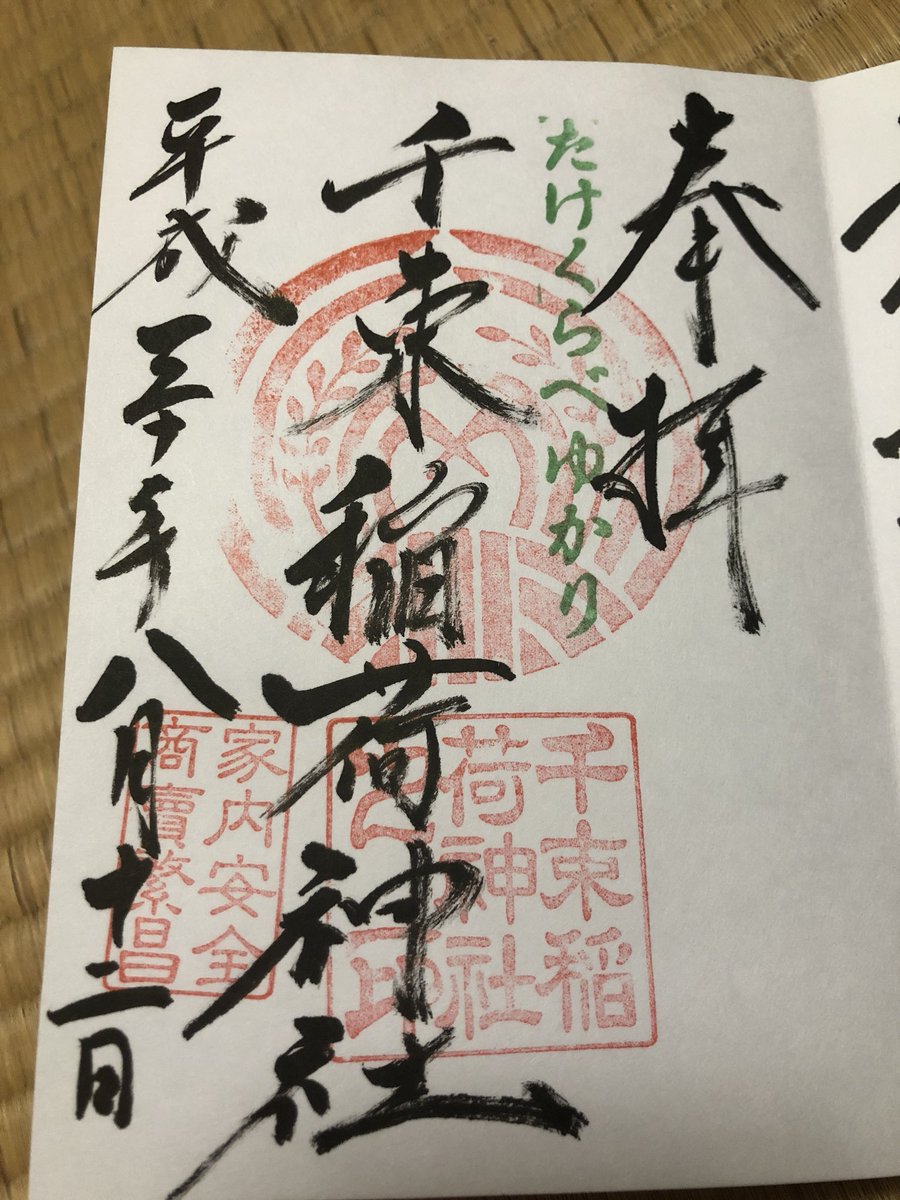 奉拝
たけくらべゆかり
千束稲荷神社
平成三十年八月十二日
千束稲
荷神社
印
家内安全
商賣繁昌